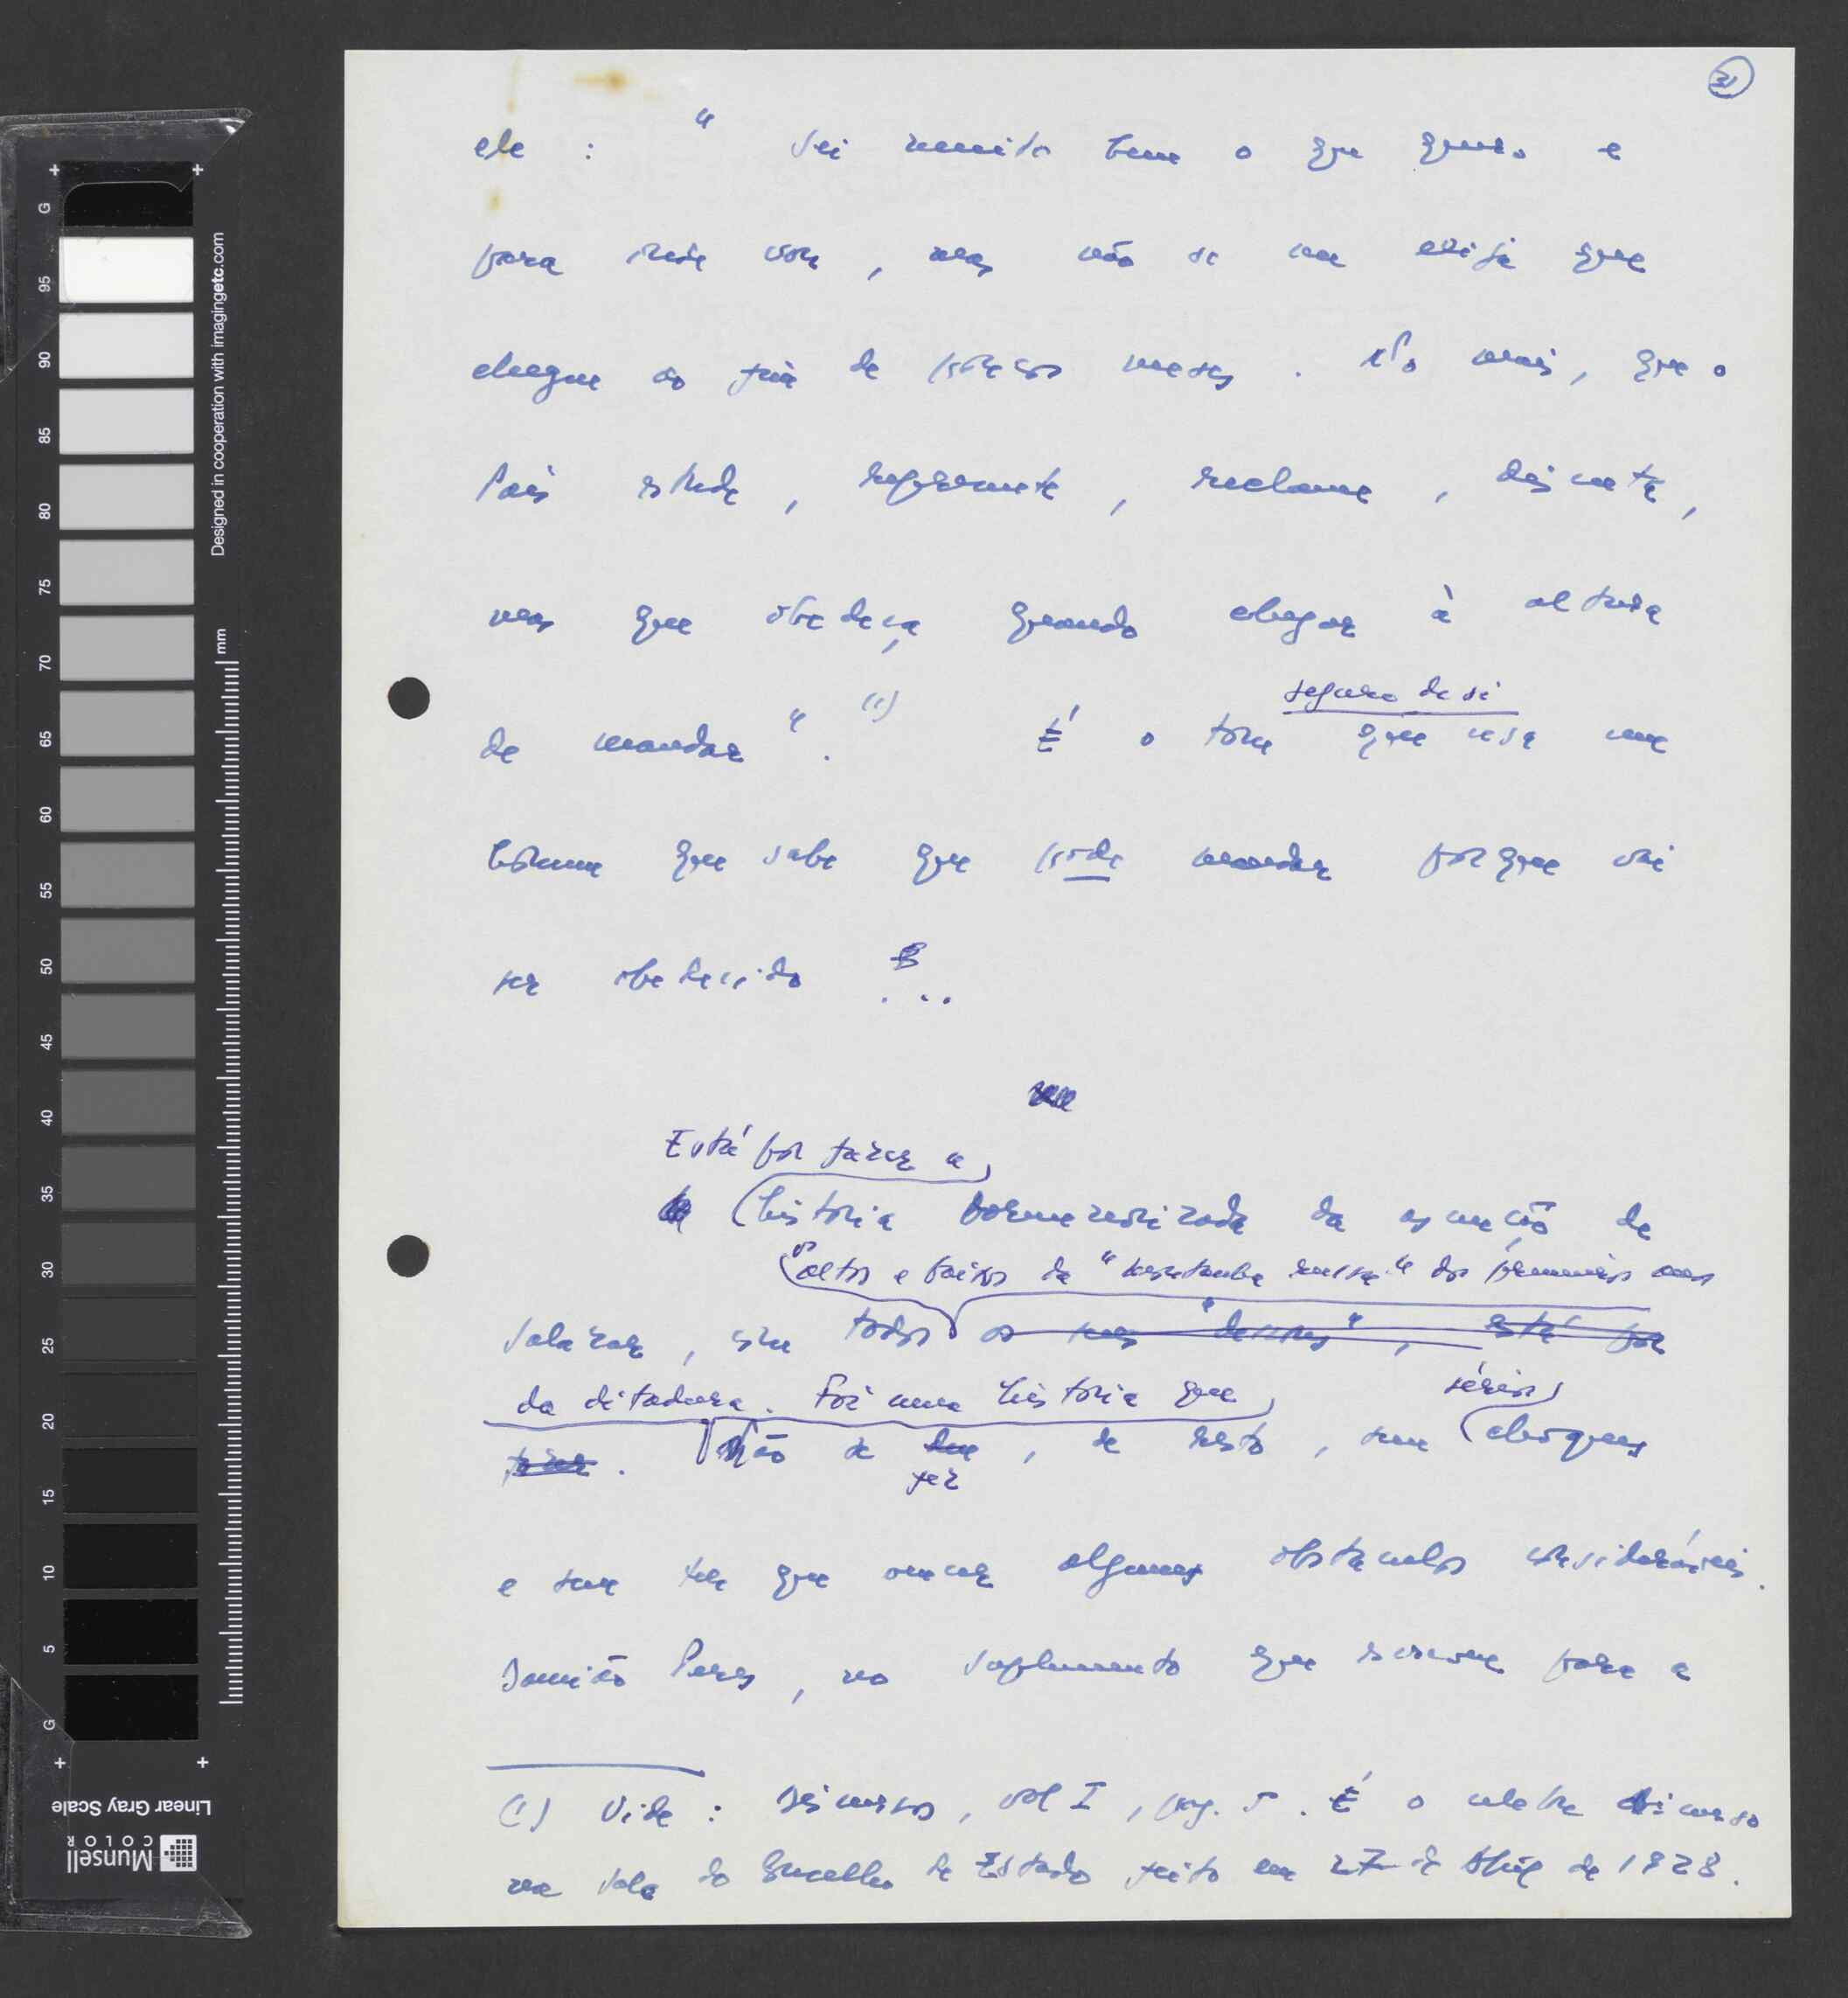 31
ele : " Sei muito bem o que quero e
para onde vou, mas não se me exija que
chegue ao fim de poucos meses. No mais, que o
País estude, represente, reclame, discuta,
mas que obedeça quando chegar à altura
de mandar ". (1) É o tom seguro de si que usa um
homem que sabe que pode mandar porque vai
ser obedecido ...
Está por fazer a
história pormenorizada da ascenção de
os altos e baixos da "montanha russa" dos primeiros anos
Salazar, com todos os seus "dessous", está por
da ditadura. Foi uma história que
sérios
fazer. Não se deu, de resto, sem choques
fez
e sem ter que vencer alguns obstáculos consideráveis.
Damião Peres, no suplemento que escreve para a
(1) Vide : Discursos, vol I, pag. 5. É o celebre discurso
na sala do Conselho de Estado feito em 27 de Abril de 1928.
G
95
90
85
80
75
70
65
60
55
50
45
40
35
30
25
20
15
10
5
G
mm
Designed in cooperation with imagingetc.com
Linear Gray Scale
Munsell
COLOR